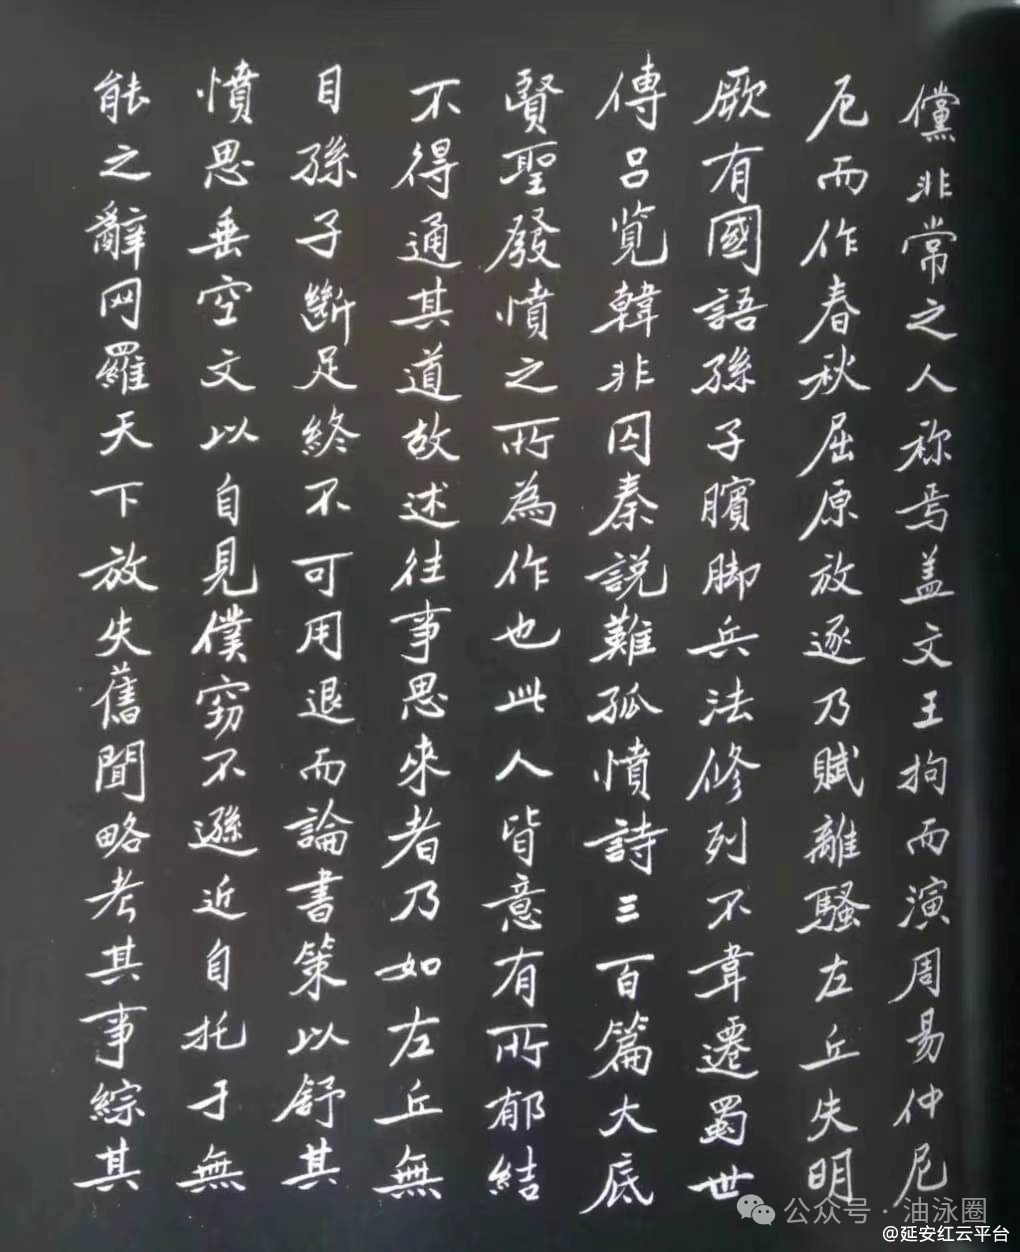 儻非常之人称焉盖文王拘而演周易仲尼
厄而作春秋屈原放逐乃賦離騷左丘失明
厥有國語孫子臏脚兵法修列不韋遷蜀世
傳吕览韓非囚秦説難孤憤詩三百篇大底
賢聖發憤之所為作也此人皆意有所郁結
不得通其道故述往事思來者乃如左丘無
目孫子斷足終不可用退而論書策以舒其
憤思垂空文以自見僕窃不遜近自托于無
能之辭网羅天下放失舊聞略考其事綜其
公众号·油泳圈
@延安红云平台